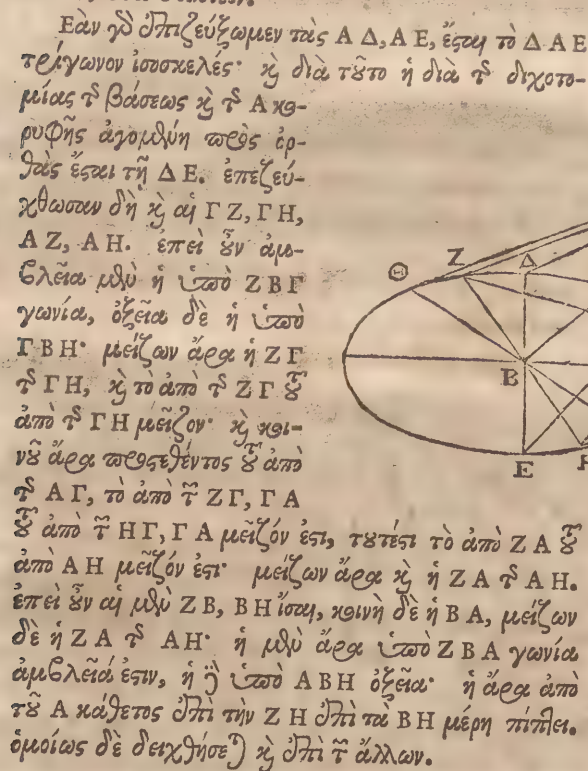 Ἐὰν γὸ ἐπιζεύξωμεν τὰς Α Δ, Α Ε, ἔσαι τὸ Δ Α Ε
τρίγωνον ἰσοσκελές· καὶ διὰ τοῦτο ἡ διὰ τῆς διχοτο-
μίας τῆς βάσεως καὶ τῆς Α κο-
ρυφῆς ἀγομένη πρὸς ὀρ-
θὰς ἔσται τῇ Δ Ε. ἐπεζεύ-
χθωσαν δὴ καὶ αἱ Γ Ζ, Γ Η,
Α Ζ, Α Η. ἐπεὶ οὖν ἀμ-
βλεῖα μὲν ἡ ὑπὸ Ζ Β Γ
γωνία, ὀξεῖα δὲ ἡ ὑπὸ
Γ Β Η· μείζων ἄρα ἡ Ζ Γ
τῆς Γ Η, καὶ τὸ ἀπὸ τῆς Ζ Γ τοῦ
ἀπὸ τῆς Γ Η μεῖζον· καὶ κοι-
νοῦ ἄρα προστεθέντος τοῦ ἀπὸ
τῆς Α Γ, τὸ ἀπὸ τῶν Ζ Γ, Γ Α
τοῦ ἀπὸ τῶν Η Γ, Γ Α μεῖζόν ἐστι, τουτέστι τὸ ἀπὸ Ζ Α τοῦ
ἀπὸ Α Η μεῖζόν ἐστι· μείζων ἄρα καὶ ἡ Ζ Α τῆς Α Η.
ἐπεὶ οὖν αἱ μὲν Ζ Β, Β Η ἴσαι, κοινὴ δὲ ἡ Β Α, μείζων
δὲ ἡ Ζ Α τῆς Α Η· ἡ μὲν ἄρα ὑπὸ Ζ Β Α γωνία
ἀμβλεῖά ἐστιν, ἡ δὲ ὑπὸ Α Β Η ὀξεῖα· ἡ ἄρα ἀπὸ
τοῦ Α κάθετος ἐπὶ τὴν Ζ Η ἐπὶ τὰ Β Η μέρη πίπτει.
ὁμοίως δὲ δειχθήσεται καὶ ἐπὶ τῶν ἄλλων.
Θ Ζ Δ
Β
Ε